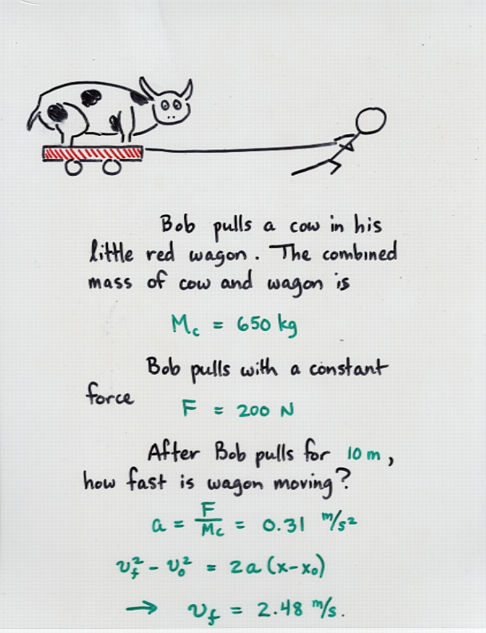 Bob pulls a cow in his
little red wagon. The combined
mass of cow and wagon is
M_c = 650 kg
Bob pulls with a constant
force
F = 200 N
After Bob pulls for 10 m,
how fast is wagon moving?
a = F/M_c = 0.31 m/s²
v_f² - v_0² = 2a(x-x_0)
→ v_f = 2.48 m/s.